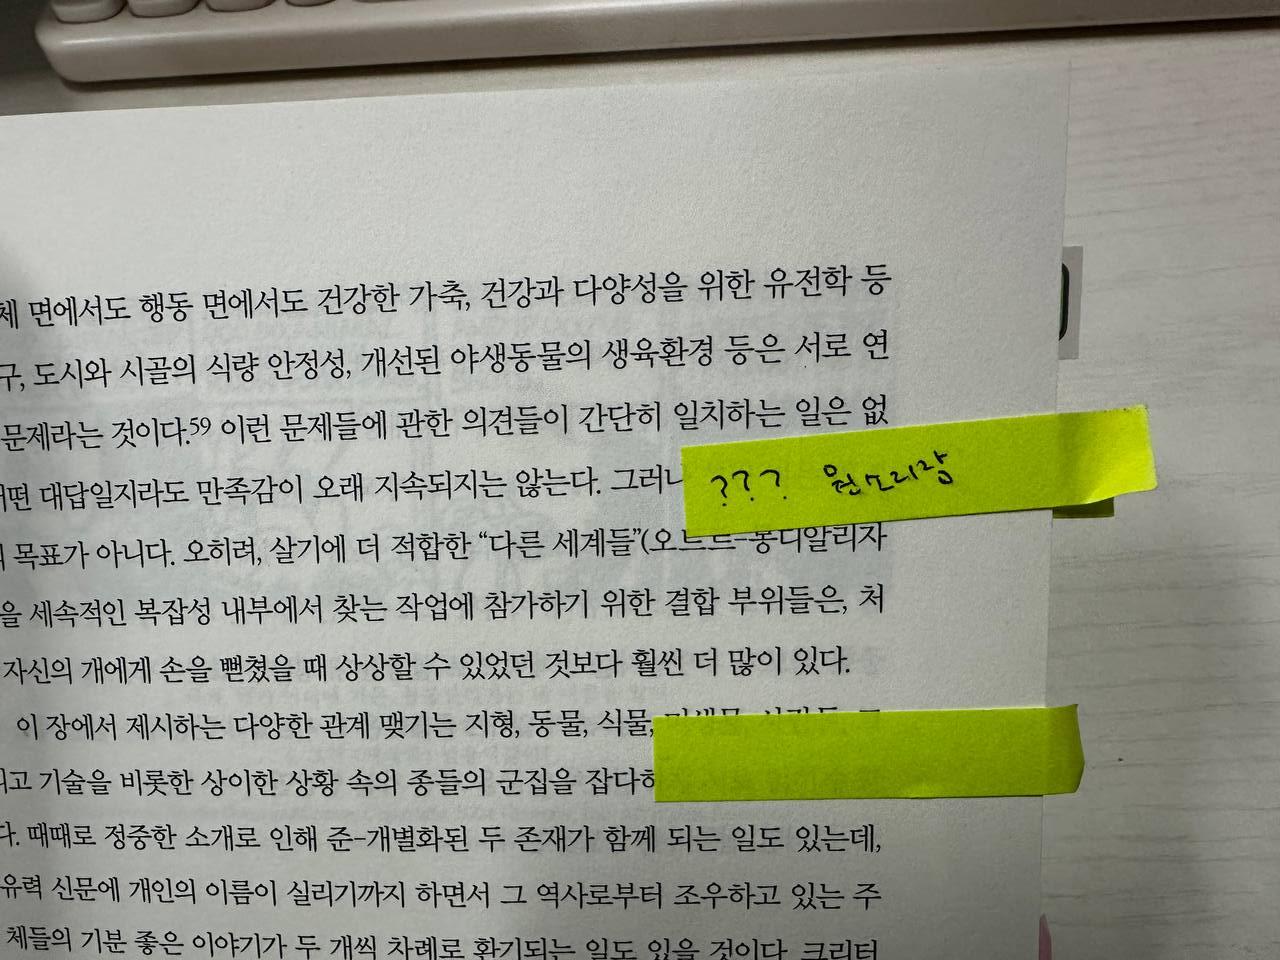 체 면에서도 행동 면에서도 건강한 가축, 건강과 다양성을 위한 유전학 등
구, 도시와 시골의 식량 안정성, 개선된 야생동물의 생육환경 등은 서로 연
문제라는 것이다.59 이런 문제들에 관한 의견들이 간단히 일치하는 일은 없
떤 대답일지라도 만족감이 오래 지속되지는 않는다. 그러나
??? 뭔소리랑
목표가 아니다. 오히려, 살기에 더 적합한 “다른 세계들”(오트르-몽디알리자
을 세속적인 복잡성 내부에서 찾는 작업에 참가하기 위한 결합 부위들은, 처
자신의 개에게 손을 뻗쳤을 때 상상할 수 있었던 것보다 훨씬 더 많이 있다.
이 장에서 제시하는 다양한 관계 맺기는 지형, 동물, 식물,
리고 기술을 비롯한 상이한 상황 속의 종들의 군집을 잡다하
다. 때때로 정중한 소개로 인해 준-개별화된 두 존재가 함께 되는 일도 있는데,
유력 신문에 개인의 이름이 실리기까지 하면서 그 역사로부터 조우하고 있는 주
체들의 기분 좋은 이야기가 두 개씩 차례로 환기되는 일도 있을 것이다. 크리터